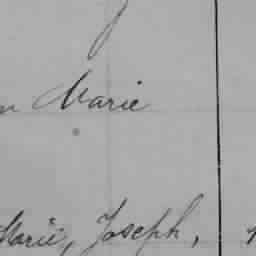 Marie
Marie, Joseph,